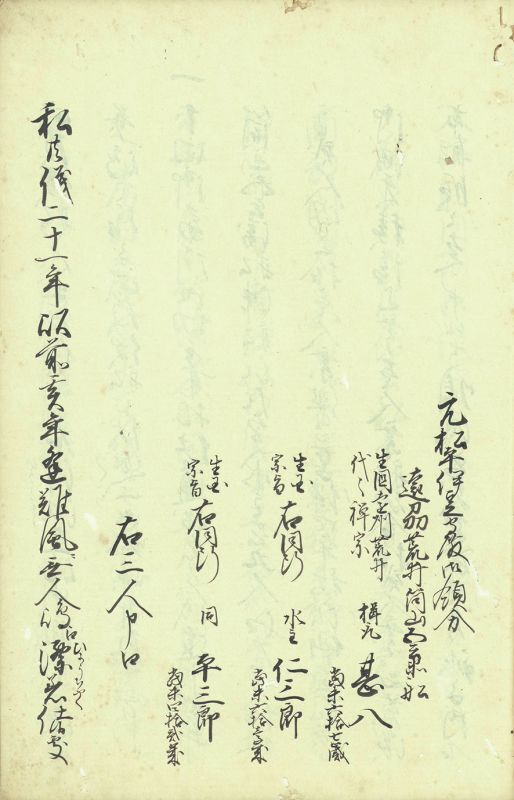 元松平伊豆守殿御領分
遠州荒井筒山五兵衛船
生国遠州荒井
代々禅宗
楫取
甚八
当未六拾七歳
生国
宗旨
右同断
水主
仁三郎
当未六拾壱歳
生国
宗旨
右同断
同
平三郎
当未四拾弐歳
右三人申口
私共儀二十一年以前亥年逢難風無人嶋江漂着仕候処